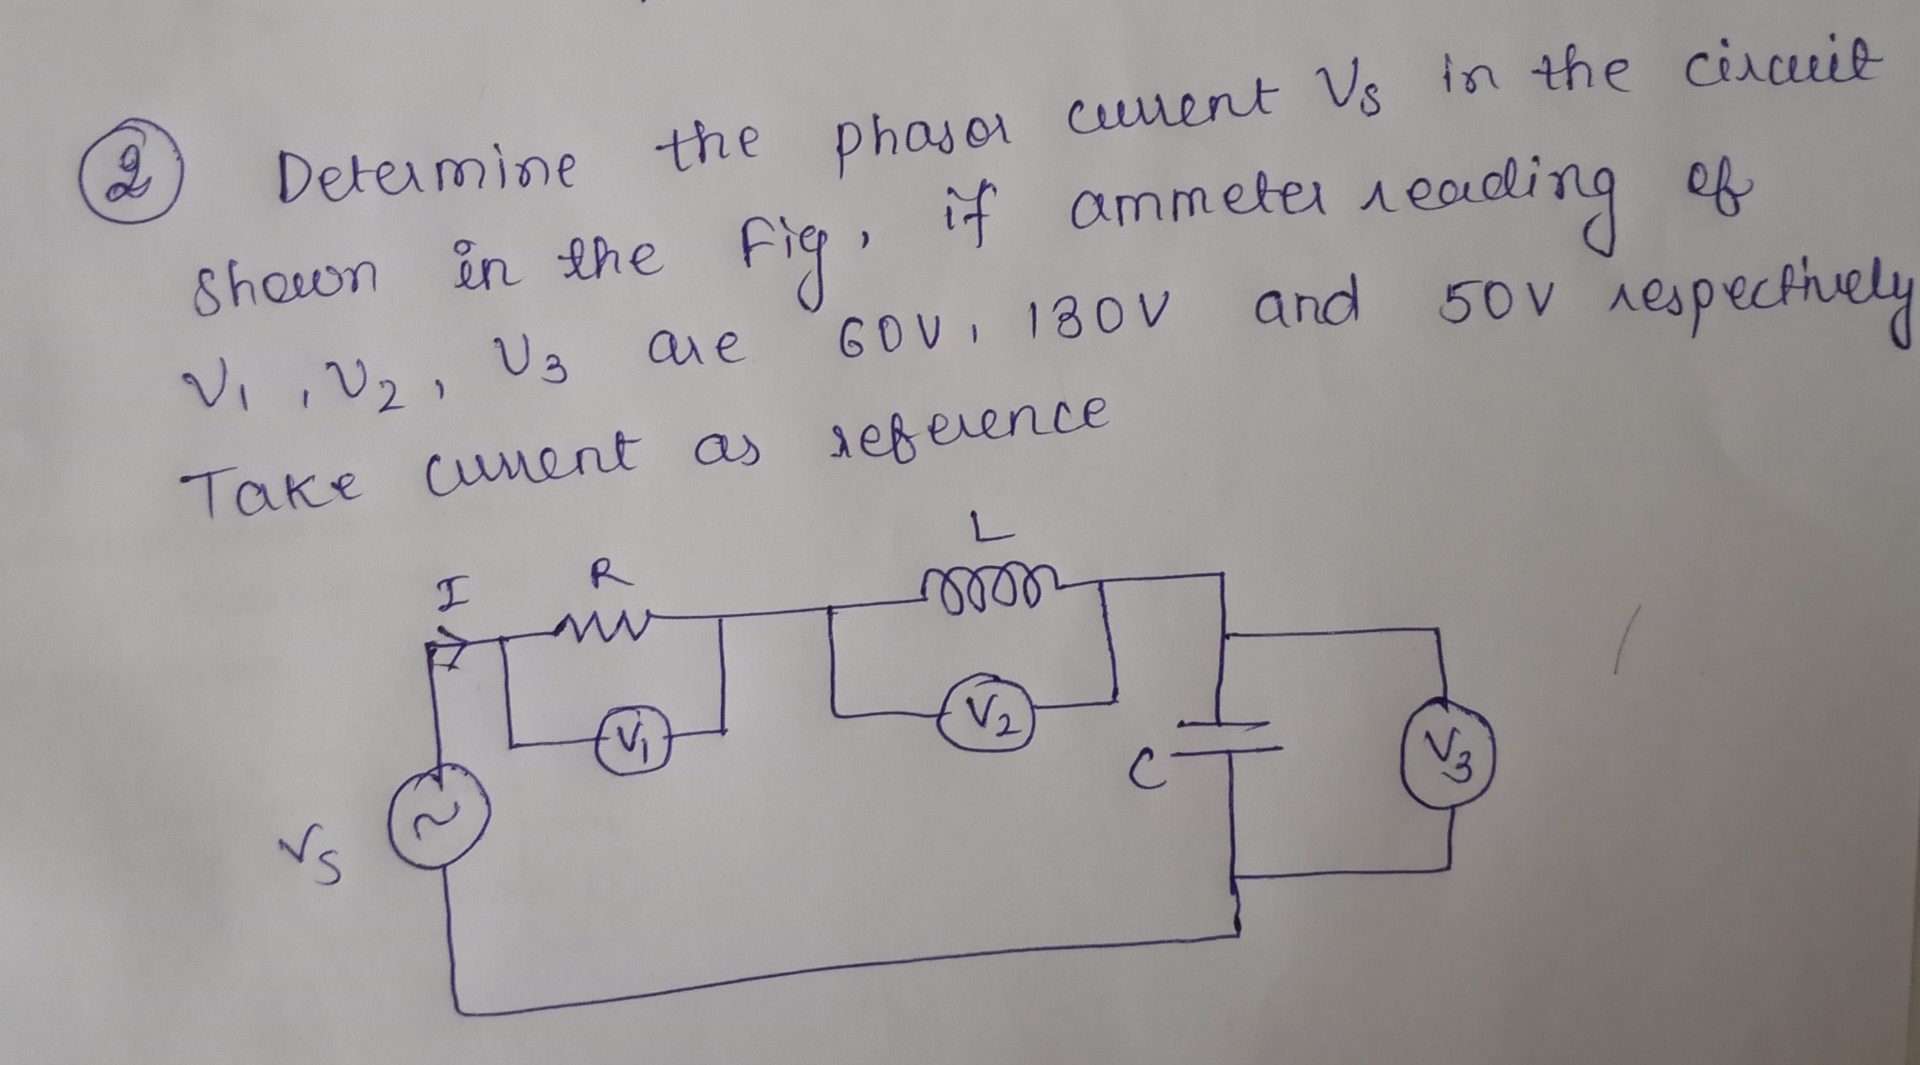 2 Determine the phasor current Vs in the circuit
shown in the Fig, if ammeter reading of
V1, V2, V3 are 60V, 130V and 50V respectively
Take current as reference
L
I R
V1 V2
C V3
Vs